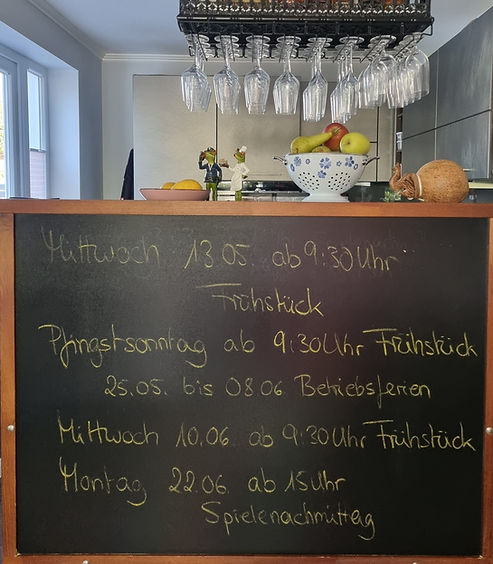 Mittwoch 13.05. ab 9:30 Uhr
Frühstück
Pfingstsonntag ab 9:30 Uhr Frühstück
25.05. bis 08.06 Betriebsferien
Mittwoch 10.06. ab 9:30 Uhr Frühstück
Montag 22.06. ab 15 Uhr
Spielenachmittag